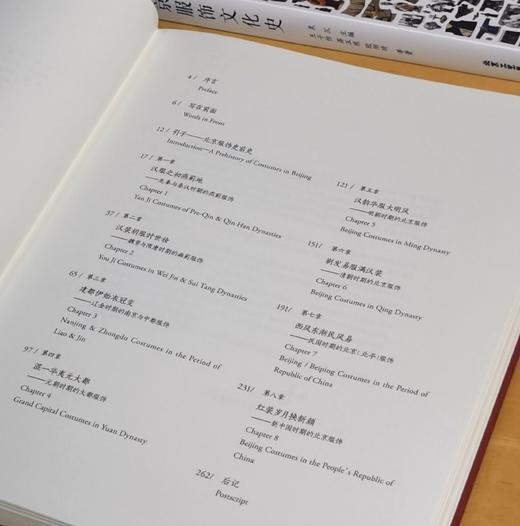 京服饰文化史
4 / 序言
Preface
6 / 写在前面
Words in Front
12 / 引子——北京服饰史前史
Introduction—A Prehistory of Costumes in Beijing
17 / 第一章
汉服之初燕蓟地
——先秦与秦汉时期的燕蓟服饰
Chapter 1
Yan Ji Costumes of Pre-Qin & Qin Han Dynasties
37 / 第二章
汉装胡服时世妆
——魏晋与隋唐时期的幽蓟服饰
Chapter 2
You Ji Costumes in Wei Jin & Sui Tang Dynasties
65 / 第三章
建都伊始衣冠变
——辽金时期的南京与中都服饰
Chapter 3
Nanjing & Zhongdu Costumes in the Period of
Liao & Jin
97 / 第四章
混一华夷元大都
——元朝时期的大都服饰
Chapter 4
Grand Capital Costumes in Yuan Dynasty
121 / 第五章
汉韵华服大明风
——明朝时期的北京服饰
Chapter 5
Beijing Costumes in Ming Dynasty
151 / 第六章
剃发易服满汉装
——清朝时期的北京服饰
Chapter 6
Beijing Costumes in Qing Dynasty
191 / 第七章
西风东渐民风易
——民国时期的北京（北平）服饰
Chapter 7
Beijing / Beiping Costumes in the Period of
Republic of China
231 / 第八章
红装岁月换新颜
——新中国时期的北京服饰
Chapter 8
Beijing Costumes in the People's Republic of
China
262 / 后记
Postscript